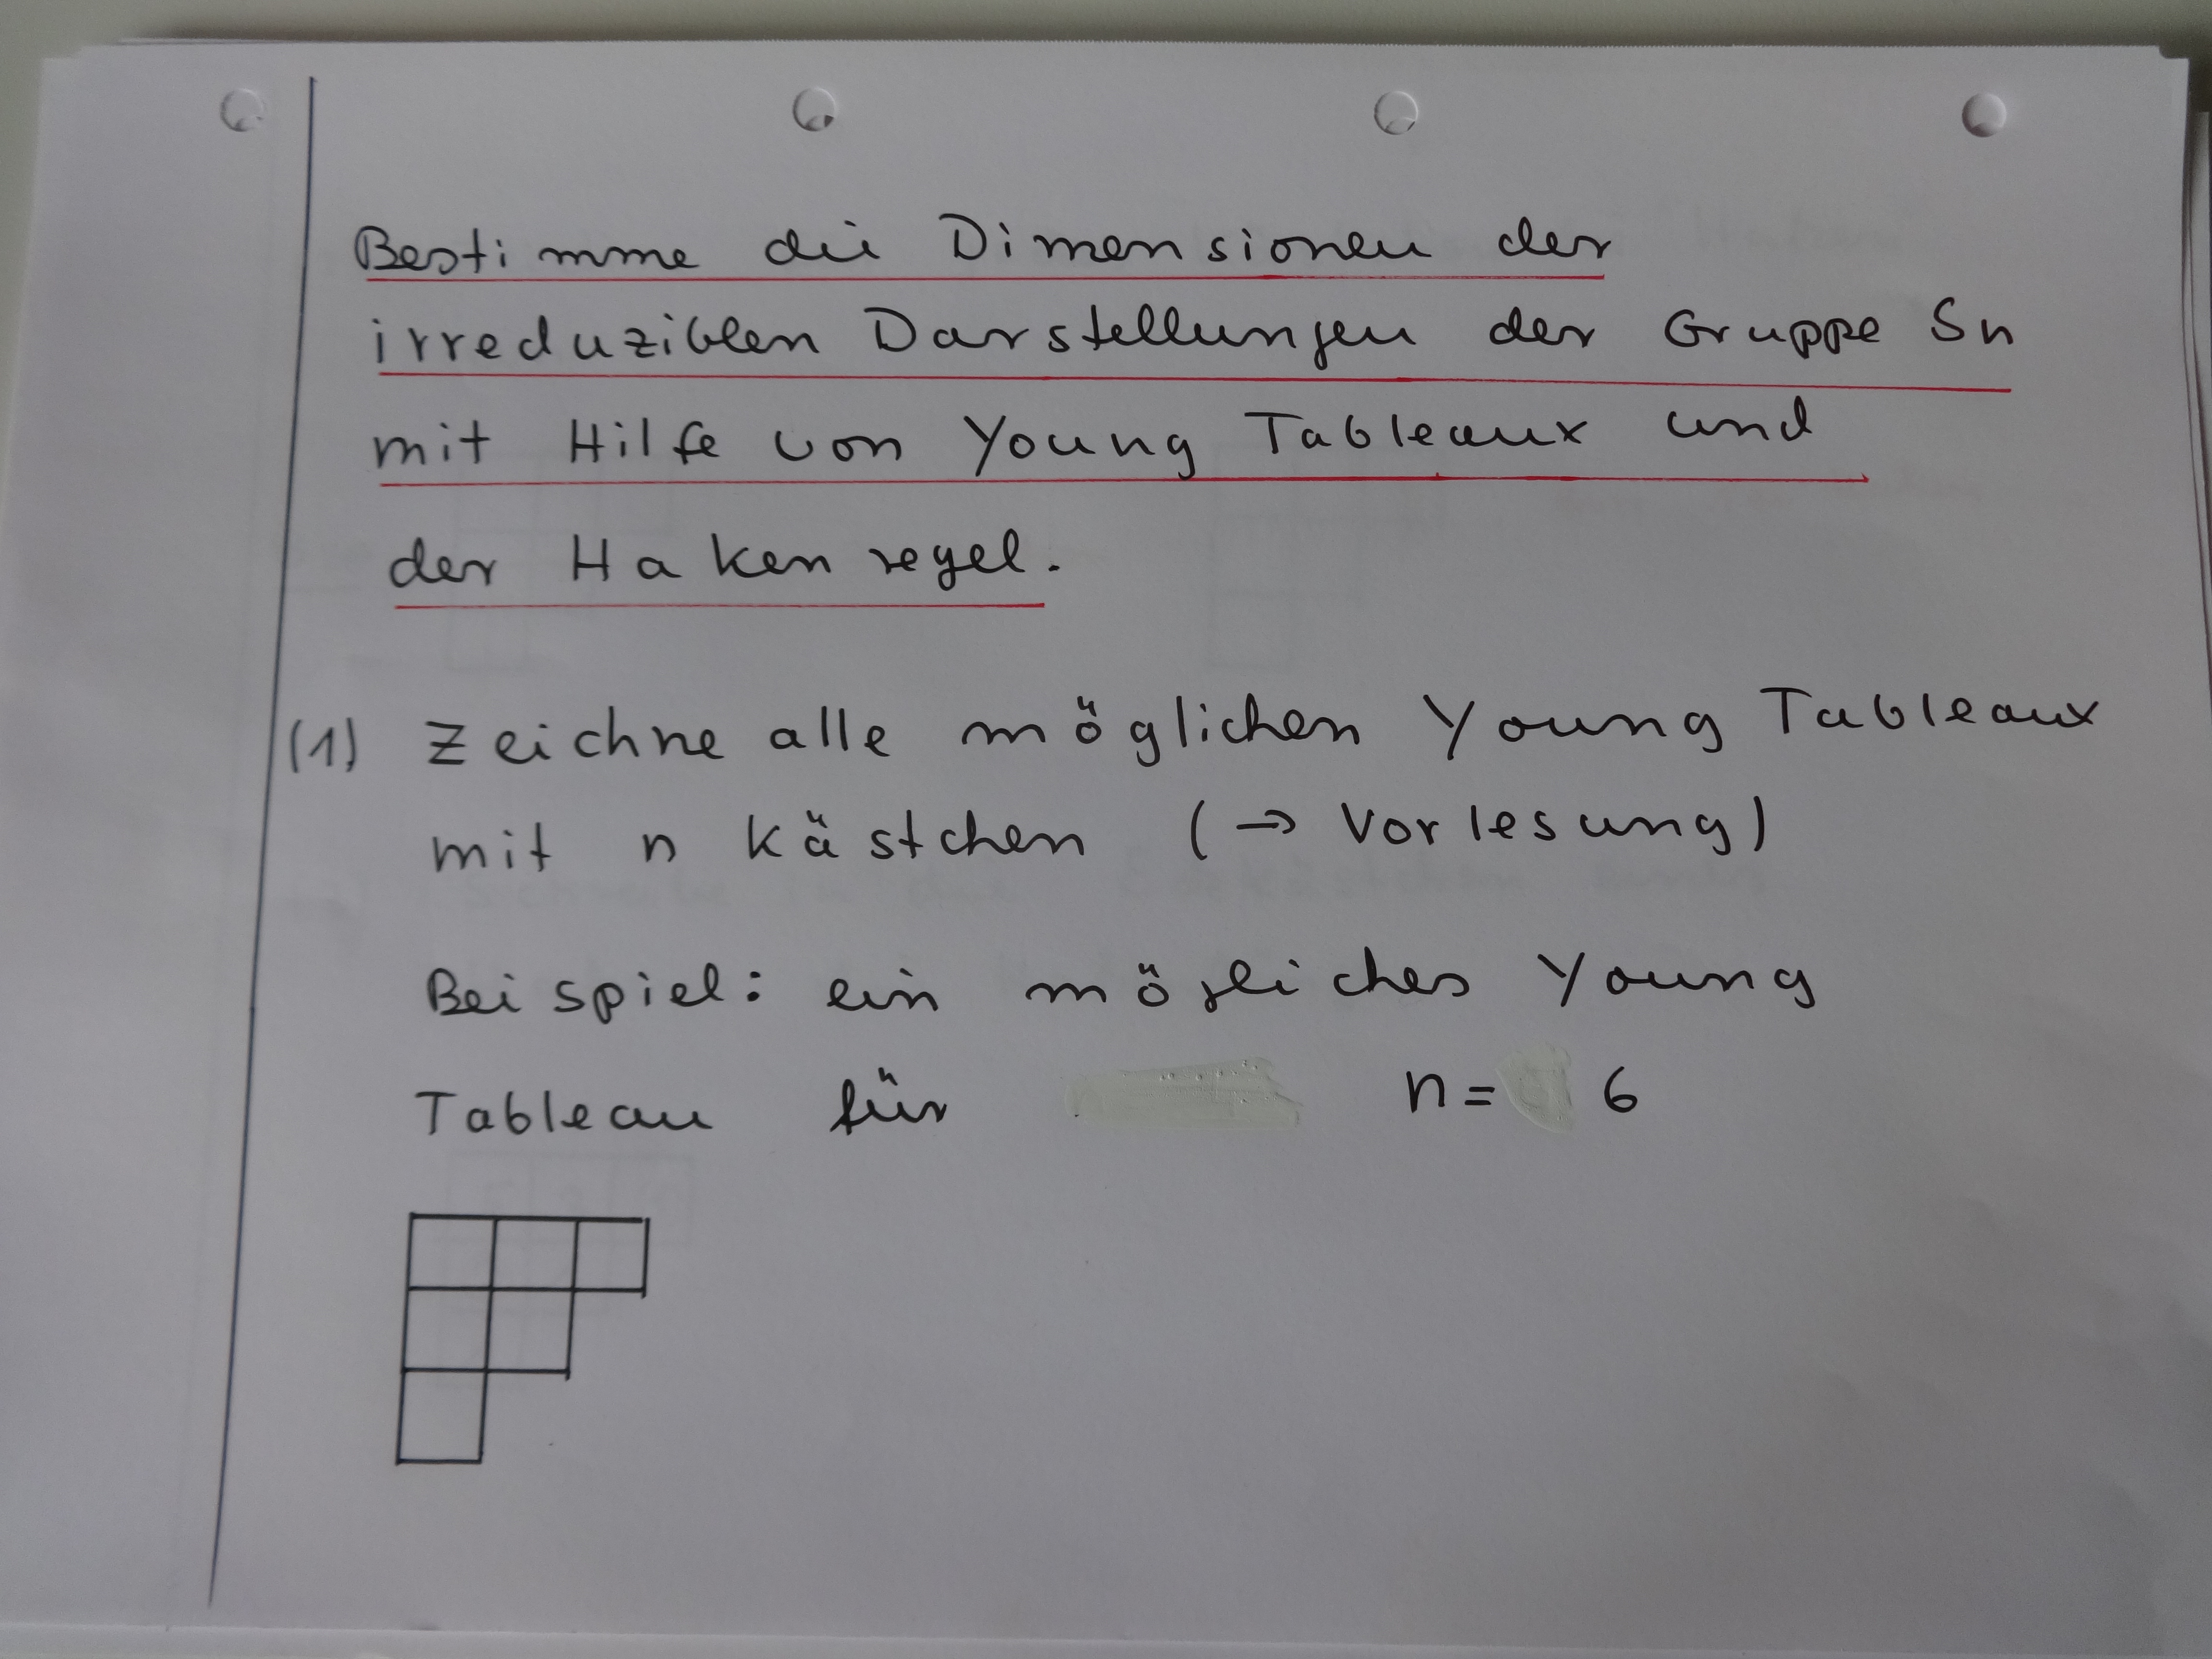 Bestimme die Dimensionen der
irreduziblen Darstellungen der Gruppe Sn
mit Hilfe von Young Tableaux und
der Hakenregel.
(1) Zeichne alle möglichen Young Tableaux
mit n Kästchen (→ Vorlesung)
Beispiel: ein mögliches Young
Tableau für n = 6